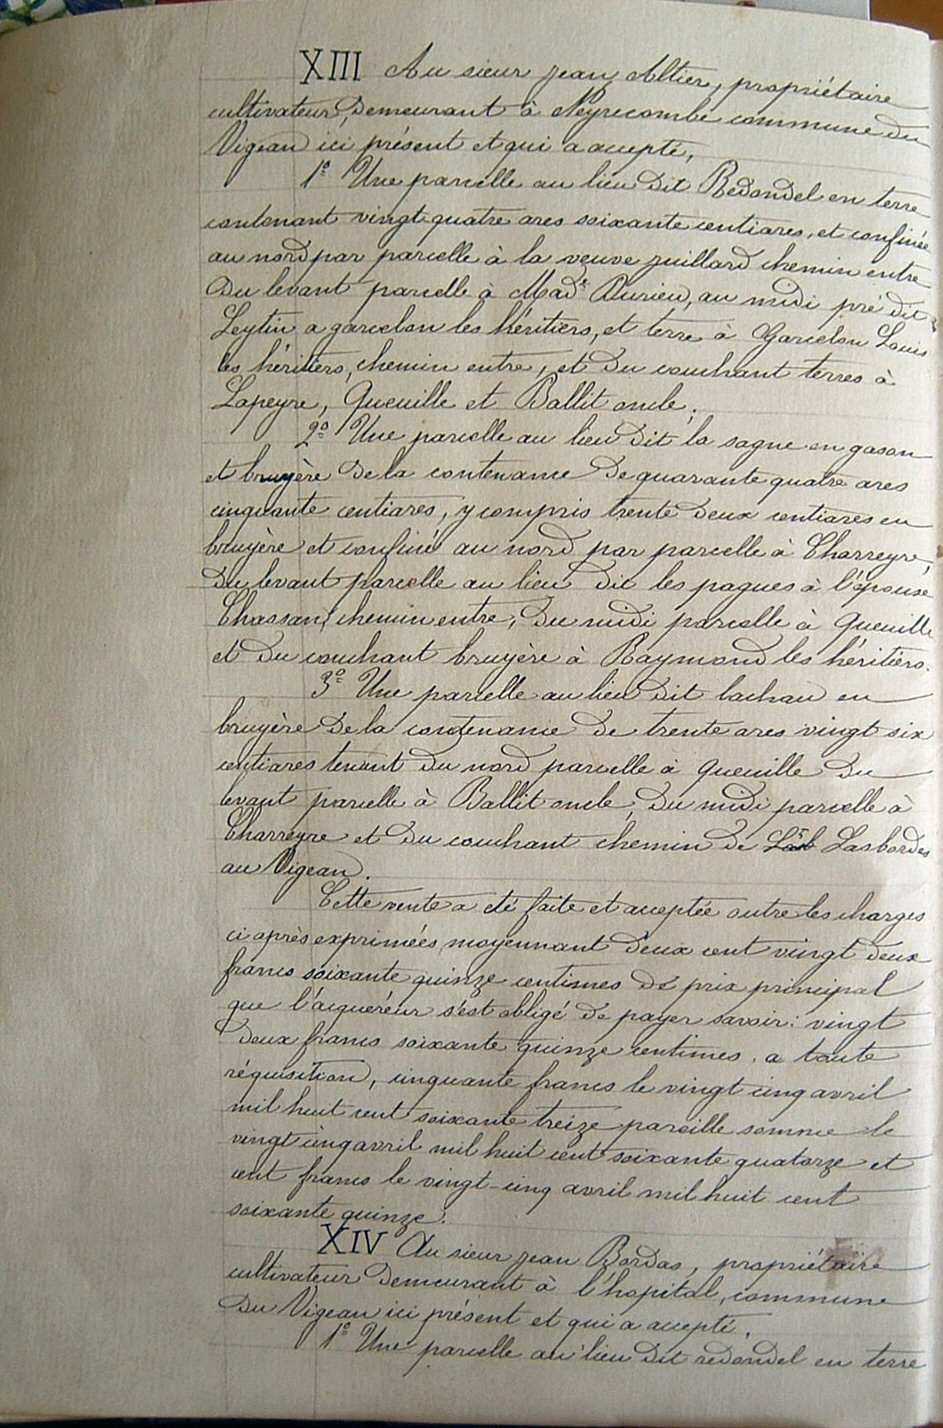 XIII Au sieur jean Altier, propriétaire
cultivateur, demeurant à Neyrecombe commune du
Vigean ici présent et qui a accepté,
1° Une parcelle au lieu dit Redondel en terre
contenant vingt quatre ares soixante centiares, et confinée
au nord par parcelle à la veuve juillard chemin entre
du levant parcelle à Made Durieu, au midi pré dit
Leytin a garcelon les héritiers, et terre à Garcelon Louis
les héritiers, chemin entre, et du couchant terres à
Lapeyre, Queuille et Ballit oncle,
2° Une parcelle au lieu dit la sagne en gason
et bruyère de la contenance de quarante quatre ares
cinquante centiares, y compris trente deux centiares en
bruyère et confiné au nord par parcelle à Charreyre,
du levant parcelle au lieu dit les pagues à l'épouse
Chassan, chemin entre, du midi parcelle à queuille
et du couchant bruyère à Raymond les héritiers.
3° Une parcelle au lieu dit lachau en
bruyère de la contenance de trente ares vingt six
centiares tenant du nord parcelle à queuille du
levant parcelle à Ballit oncle, du midi parcelle à
Charreyre et du couchant chemin de Lasbordes
au Vigean.
Cette vente a été faite et acceptée outre les charges
ci après exprimées moyennant deux cent vingt deux
francs soixante quinze centimes de prix principal
que l'acquéreur s'est obligé de payer savoir : vingt
deux francs soixante quinze centimes. a toute
réquisition, cinquante francs le vingt cinq avril
mil huit cent soixante treize pareille somme le
vingt cinq avril mil huit cent soixante quatorze et
cent francs le vingt-cinq avril mil huit cent
soixante quinze.
XIV Au sieur jean Bordas, propriétaire
cultivateur demeurant à l'hopital, commune
du Vigean ici présent et qui a accepté.
1° Une parcelle au lieu dit redondel en terre